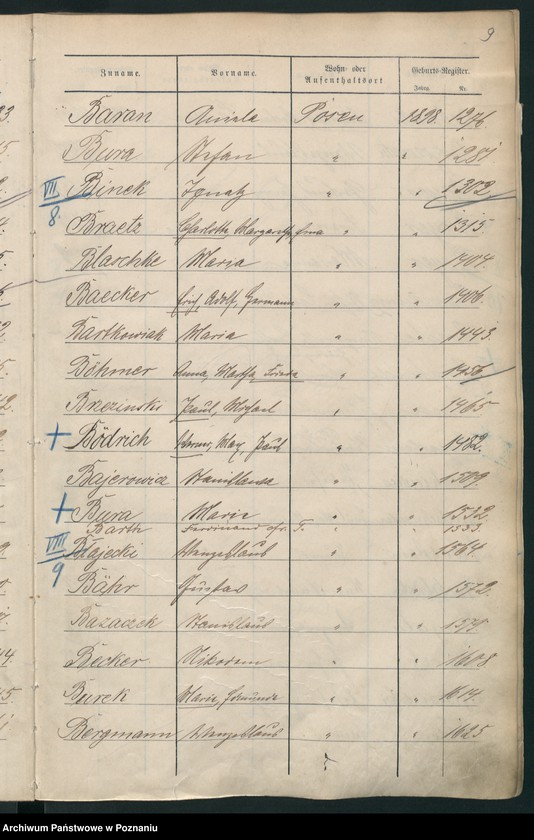 9
Zuname. Vorname. Wohn- oder Aufenthaltsort Geburts-Register.
Jahrg. Nr.
Baran Aniela Posen 1898. 1276
Bura Stefan " " 1281
VII Binek Ignatz " " 1302
8 Braetz Charlotte Margarethe Erna " " 1315
Blaschke Maria " " 1404.
Baecker Erich, Adolf, Hermann " " 1406.
Bartkowiak Maria " " 1443.
Böhmer Anna, Martha, Frieda " " 1456
Brzezinski Paul, Michael " " 1465
+ Bödrich Max, Paul " " 1482.
Bajerowicz Stanislawa " " 1509.
+ Bura Marie " " 1532
Barth Ferdinand " " 1533.
VIII Blajecki Wenzeslaus " " 1564.
9 Bähr Gustav " " 1572.
Bazaczek Stanislaus " "
Becker Nikodem " " 1608
Burek Maria, " " 1614.
Bergmann Wenzeslaus " " 1625
Archiwum Państwowe w Poznaniu